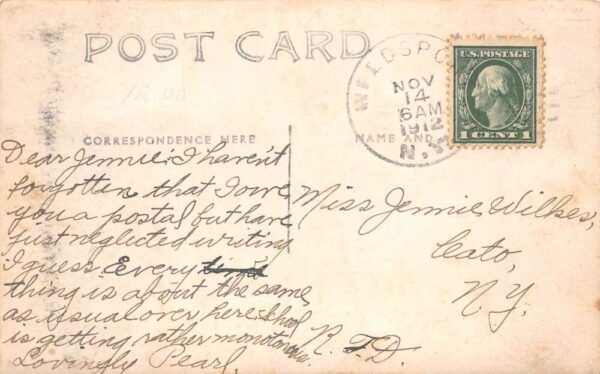 POST CARD
WEEDSPO
NOV
14
6 AM
1912
N.Y.
U.S. POSTAGE
1 CENT 1
12.00
CORRESPONDENCE HERE
NAME AND
Dear Jennie: I haven't
forgotten that I owe
you a postal but have
just neglected writing
I guess. Every
thing is about the same
as usual over here. School
is getting rather monotonous.
Lovingly Pearl.
Miss Jennie Wilkes,
Cato,
N.Y.
R.F.D.